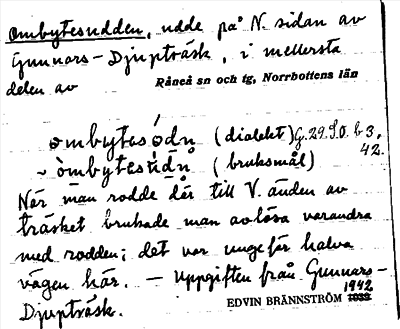 Ombytesudden, udde på N. sidan av
Gunnars-Djupträsk, i mellersta
delen av Råneå sn och tg, Norrbottens län
ombytesódn (dialekt) G. 29. S.O. b 3,
42.
~ òmbytesúdn (bruksmål)
När man rodde där till V. änden av
träsket brukade man avlösa varandra
med rodden; det var ungefär halva
vägen här. — Uppgiften från Gunnars-
Djupträsk. EDVIN BRÄNNSTRÖM 1942